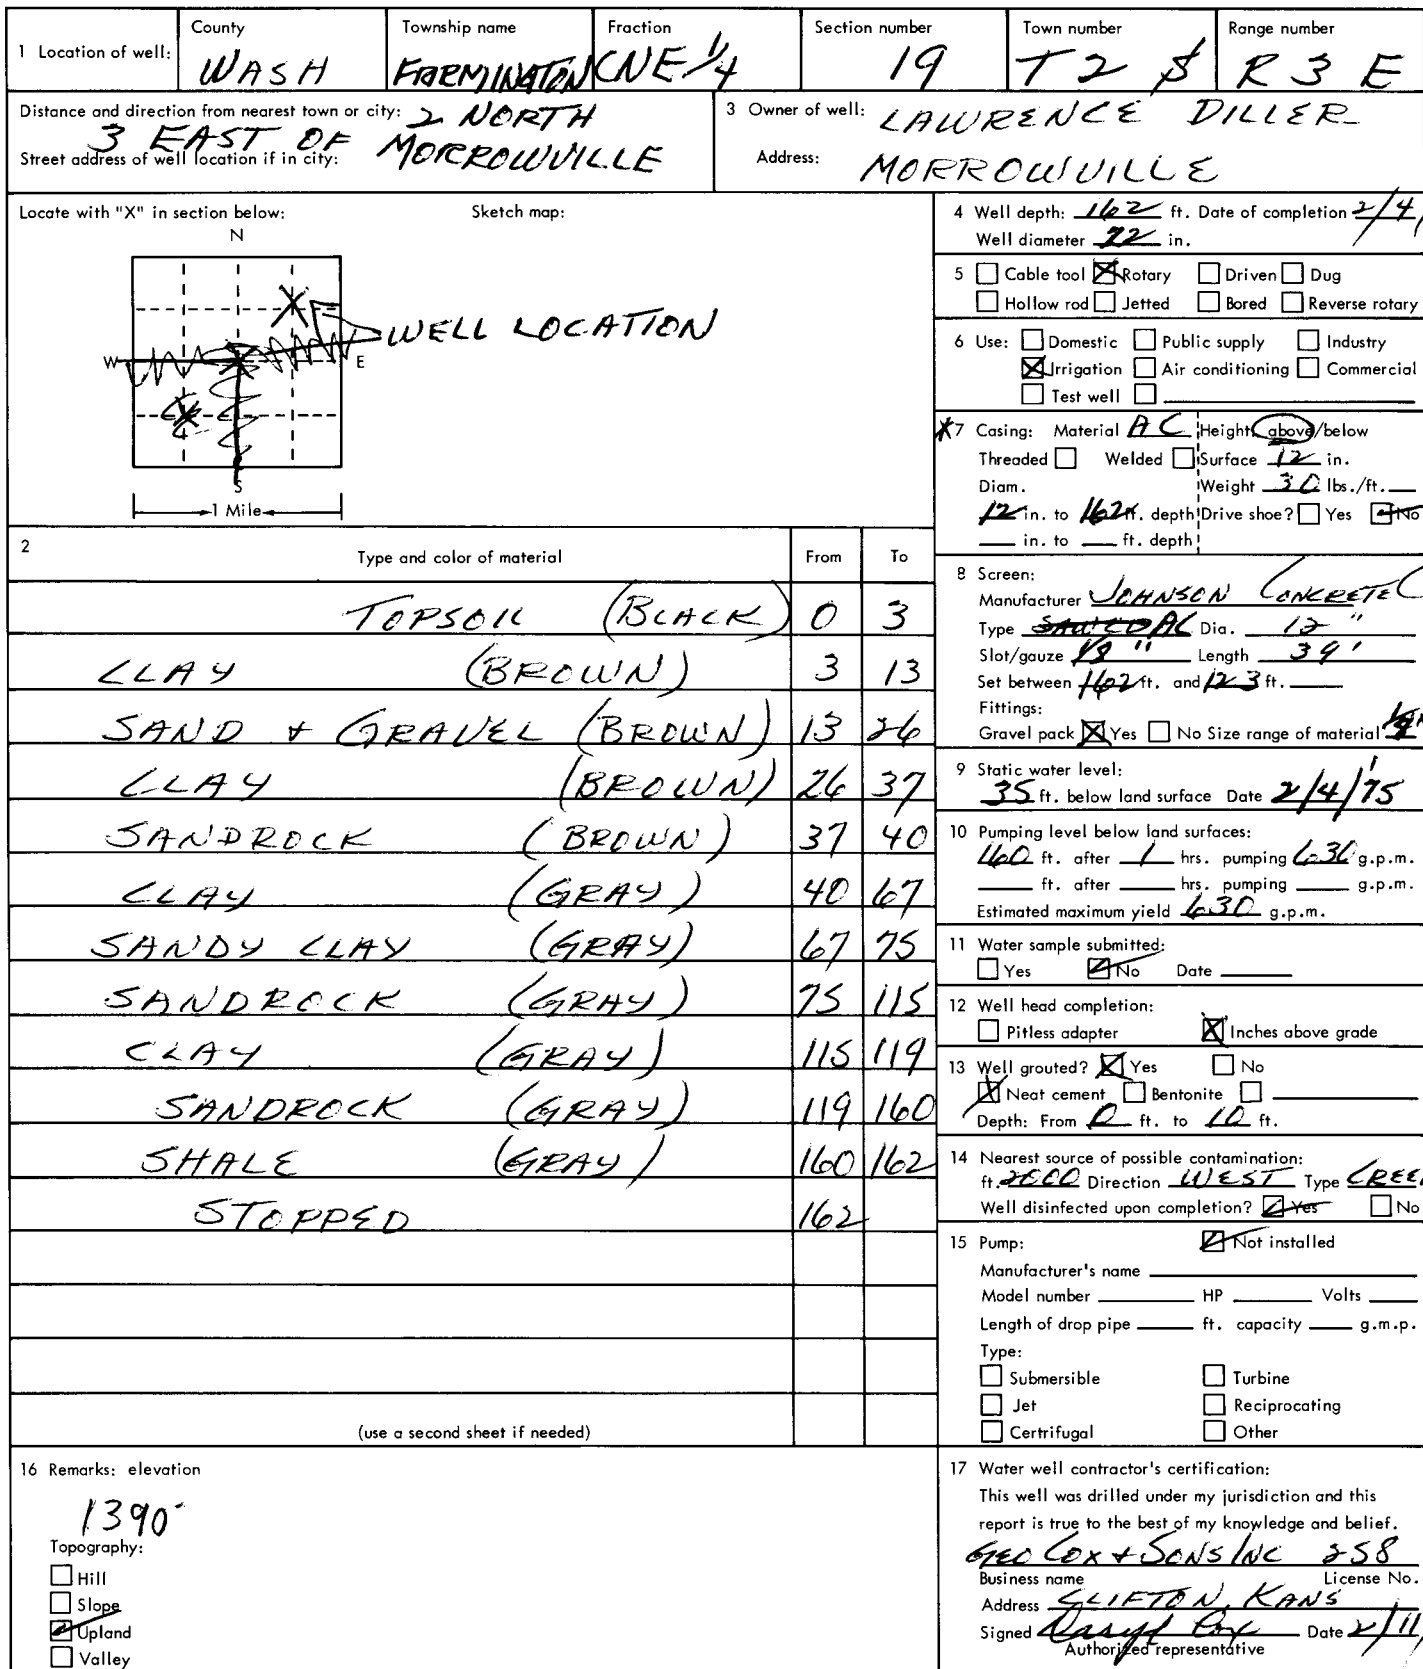 County Township name Fraction Section number Town number Range number
1 Location of well: WASH FARMINGTON CNE 1/4 19 T2 S R 3 E
Distance and direction from nearest town or city: 2 NORTH
3 EAST OF MORROWVILLE
Street address of well location if in city:
3 Owner of well: LAWRENCE DILLER
Address: MORROWVILLE
Locate with "X" in section below: Sketch map:
N
WELL LOCATION
W E
S
1 Mile
2 Type and color of material From To
TOPSOIL (BLACK) 0 3
CLAY (BROWN) 3 13
SAND + GRAVEL (BROWN) 13 26
CLAY (BROWN) 26 37
SANDROCK (BROWN) 37 40
CLAY (GRAY) 40 67
SANDY CLAY (GRAY) 67 75
SANDROCK (GRAY) 75 115
CLAY (GRAY) 115 119
SANDROCK (GRAY) 119 160
SHALE (GRAY) 160 162
STOPPED 162
(use a second sheet if needed)
16 Remarks: elevation
1390
Topography:
Hill
Slope
Upland
Valley
4 Well depth: 162 ft. Date of completion 2/4/
Well diameter 22 in.
5 Cable tool Rotary Driven Dug
Hollow rod Jetted Bored Reverse rotary
6 Use: Domestic Public supply Industry
Irrigation Air conditioning Commercial
Test well
*7 Casing: Material AC Height: above/below
Threaded Welded Surface 12 in.
Diam. Weight 30 lbs./ft.
12 in. to 162 ft. depth Drive shoe? Yes No
in. to ft. depth
8 Screen:
Manufacturer JOHNSON CONCRETE
Type AC Dia. 12 "
Slot/gauze 1/8 " Length 39 '
Set between 162 ft. and 123 ft.
Fittings:
Gravel pack Yes No Size range of material
9 Static water level:
35 ft. below land surface Date 2/4/75
10 Pumping level below land surfaces:
160 ft. after 1 hrs. pumping 630 g.p.m.
ft. after hrs. pumping g.p.m.
Estimated maximum yield 630 g.p.m.
11 Water sample submitted:
Yes No Date
12 Well head completion:
Pitless adapter Inches above grade
13 Well grouted? Yes No
Neat cement Bentonite
Depth: From 0 ft. to 10 ft.
14 Nearest source of possible contamination:
ft. 2000 Direction WEST Type CREE
Well disinfected upon completion? Yes No
15 Pump: Not installed
Manufacturer's name
Model number HP Volts
Length of drop pipe ft. capacity g.m.p.
Type:
Submersible Turbine
Jet Reciprocating
Certrifugal Other
17 Water well contractor's certification:
This well was drilled under my jurisdiction and this
report is true to the best of my knowledge and belief.
GEO COX + SONS INC 258
Business name License No.
Address CLIFTON, KANS
Signed Daryl Cox Date 2/11/
Authorized representative